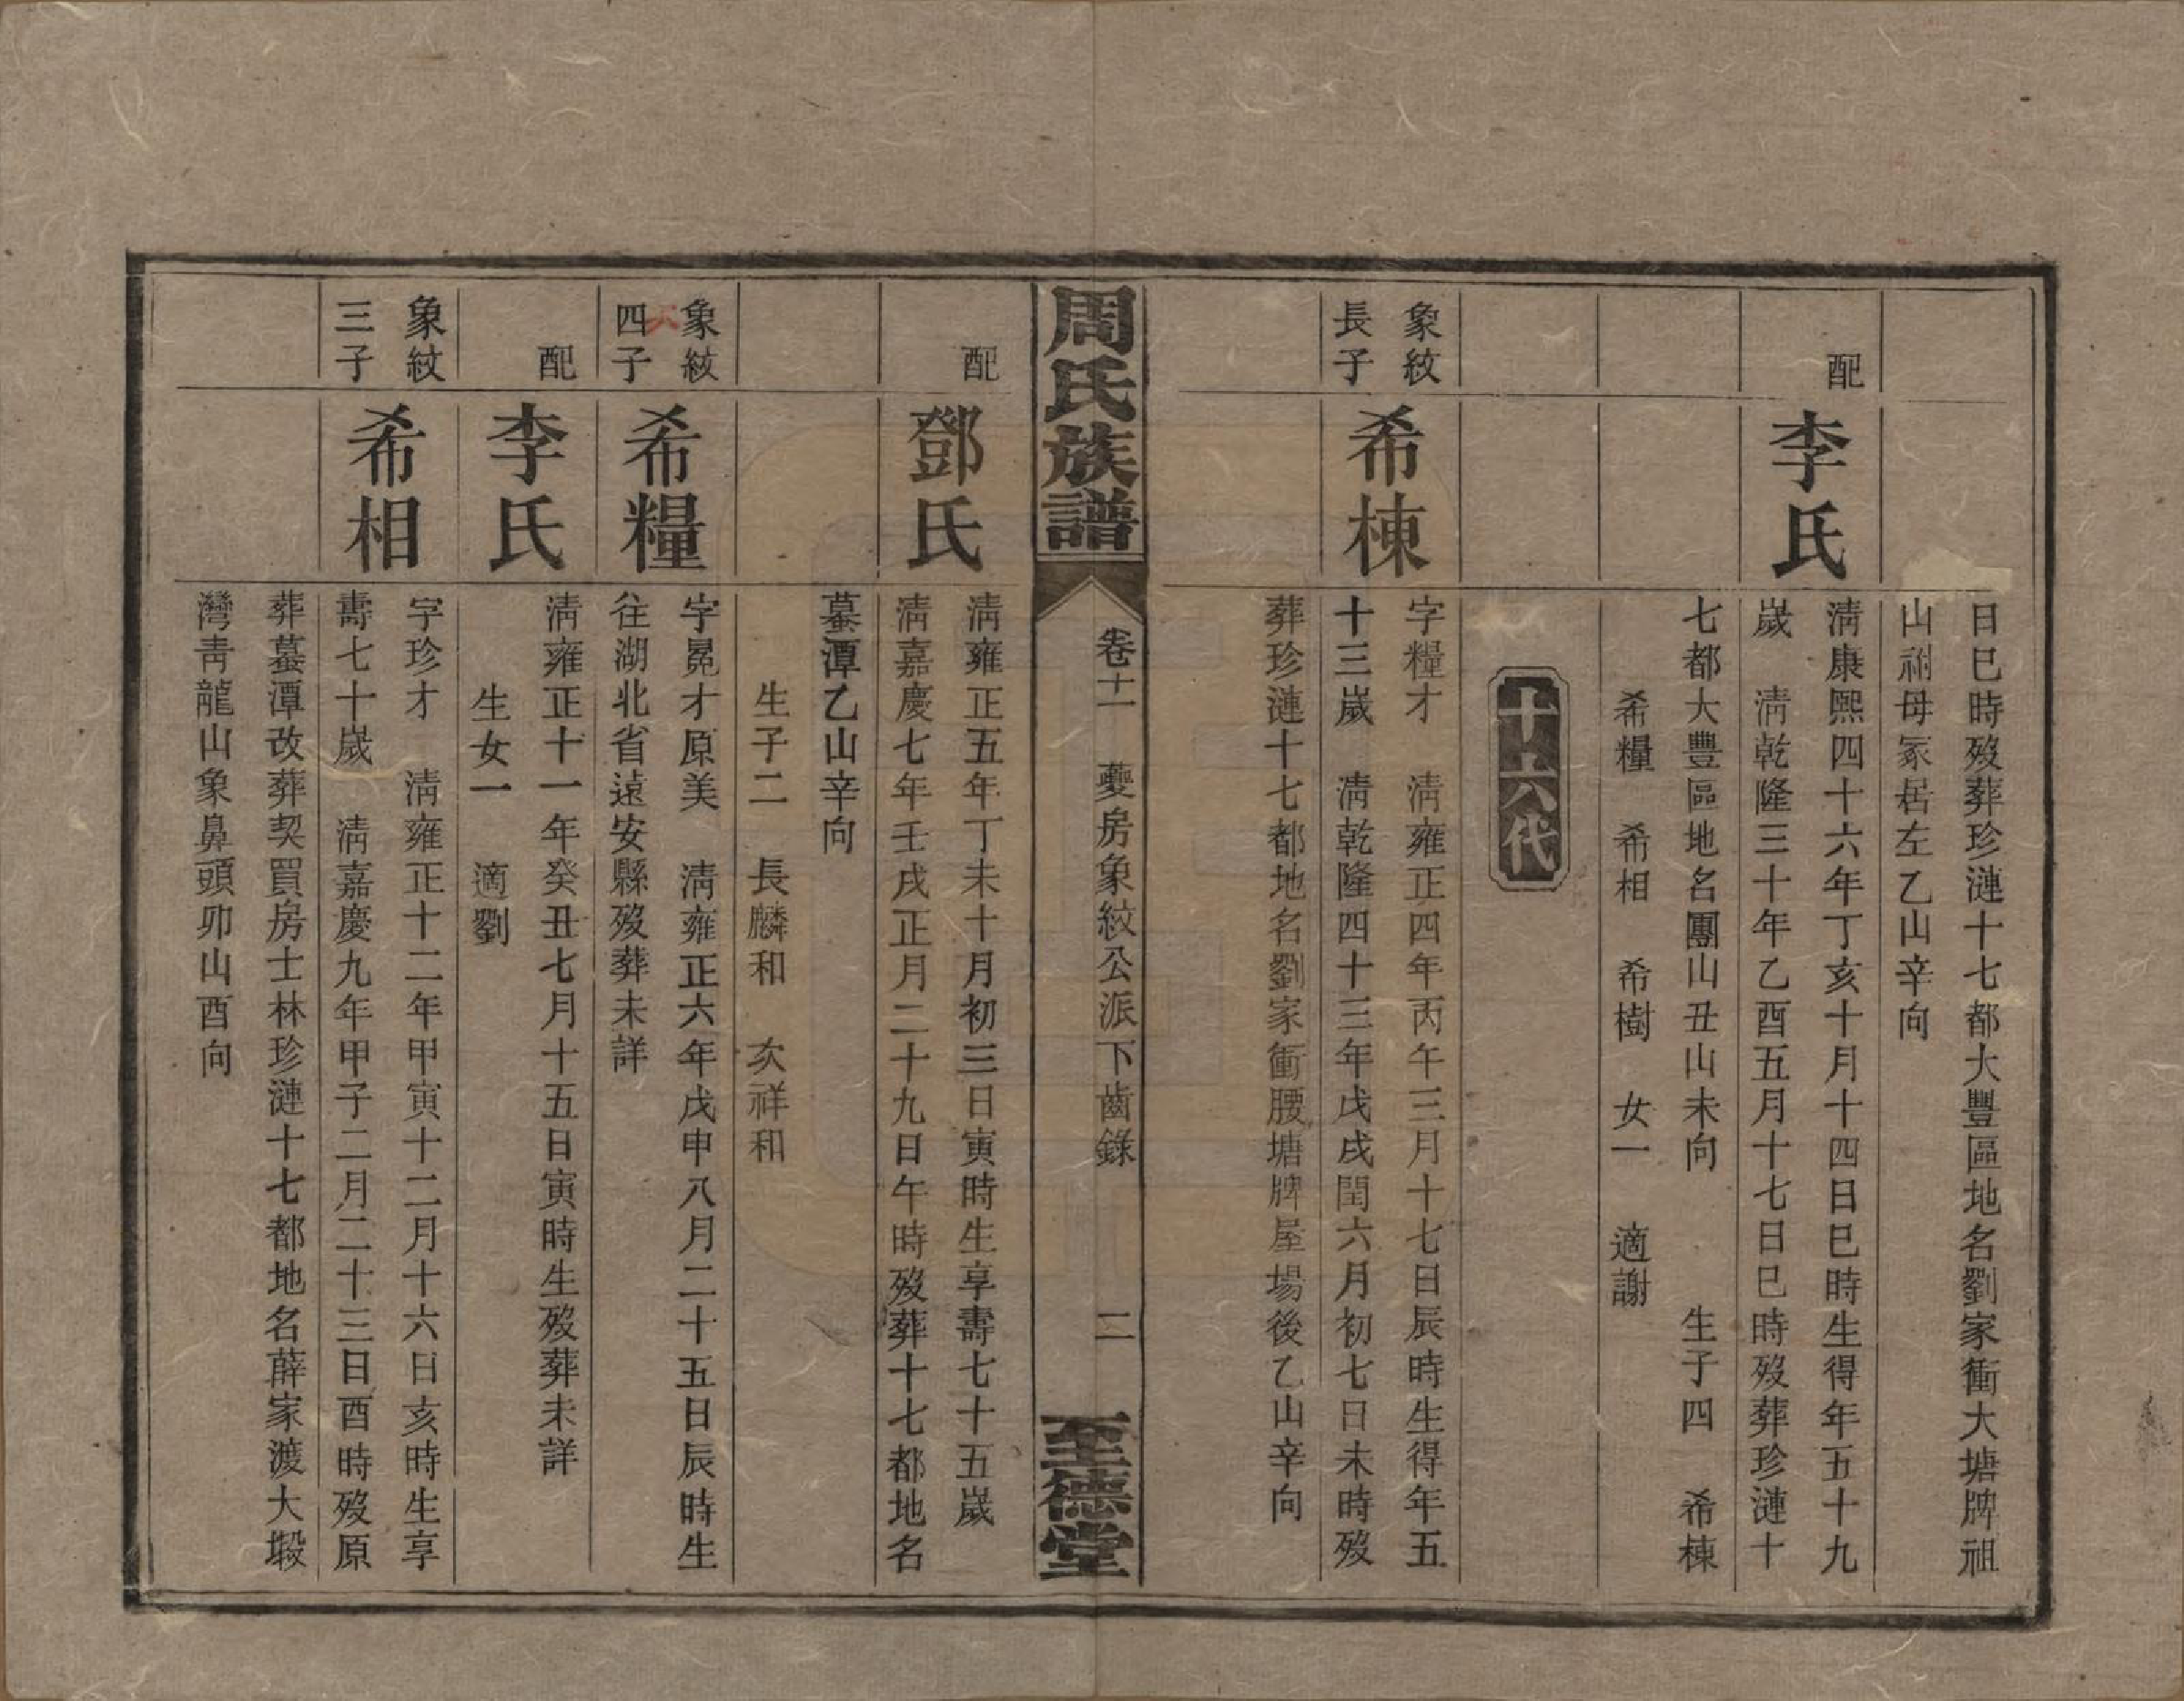 日巳時歿葬珍漣十七都大豐區地名劉家衝大塘牌祖
山祔母冢居左乙山辛向
配
李氏
淸康熙四十六年丁亥十月十四日巳時生得年五十九
歲 淸乾隆三十年乙酉五月十七日巳時歿葬珍漣十
七都大豐區地名團山丑山未向 生子四 希棟
希糧 希相 希樹 女一 適謝
十六代
象紋
長子
希棟
字糧才 淸雍正四年丙午三月十七日辰時生得年五
十三歲 淸乾隆四十三年戊戌閏六月初七日未時歿
葬珍漣十七都地名劉家衝腰塘牌屋場後乙山辛向
周氏族譜
卷十一 夔房象紋公派下齒錄 二
至德堂
配
鄧氏
淸雍正五年丁未十月初三日寅時生享壽七十五歲
淸嘉慶七年壬戌正月二十九日午時歿葬十七都地名
蟇潭乙山辛向
生子二 長麟和 次祥和
象紋
四子
希糧
字冕才原美 淸雍正六年戊申八月二十五日辰時生
往湖北省遠安縣歿葬未詳
配
李氏
淸雍正十一年癸丑七月十五日寅時生歿葬未詳
生女一 適劉
象紋
三子
希相
字珍才 淸雍正十二年甲寅十二月十六日亥時生享
壽七十歲 淸嘉慶九年甲子二月二十三日酉時歿原
葬蟇潭改葬契買房士林珍漣十七都地名薛家渡大塅
灣靑龍山象鼻頭卯山酉向